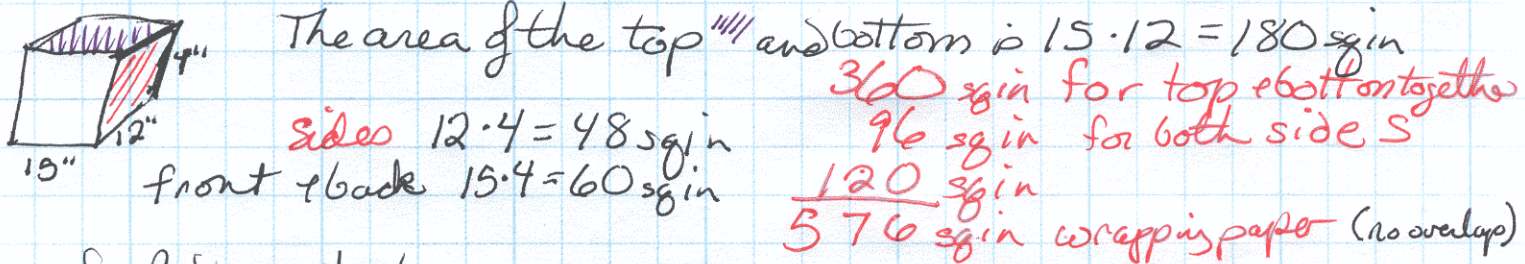 The area of the top and bottom is 15·12 = 180 sq in
4"
12"
15"
360 sq in for top & bottom together
sides 12·4 = 48 sq in
96 sq in for both sides
front & back 15·4 = 60 sq in
120 sq in
576 sq in wrapping paper (no overlap)